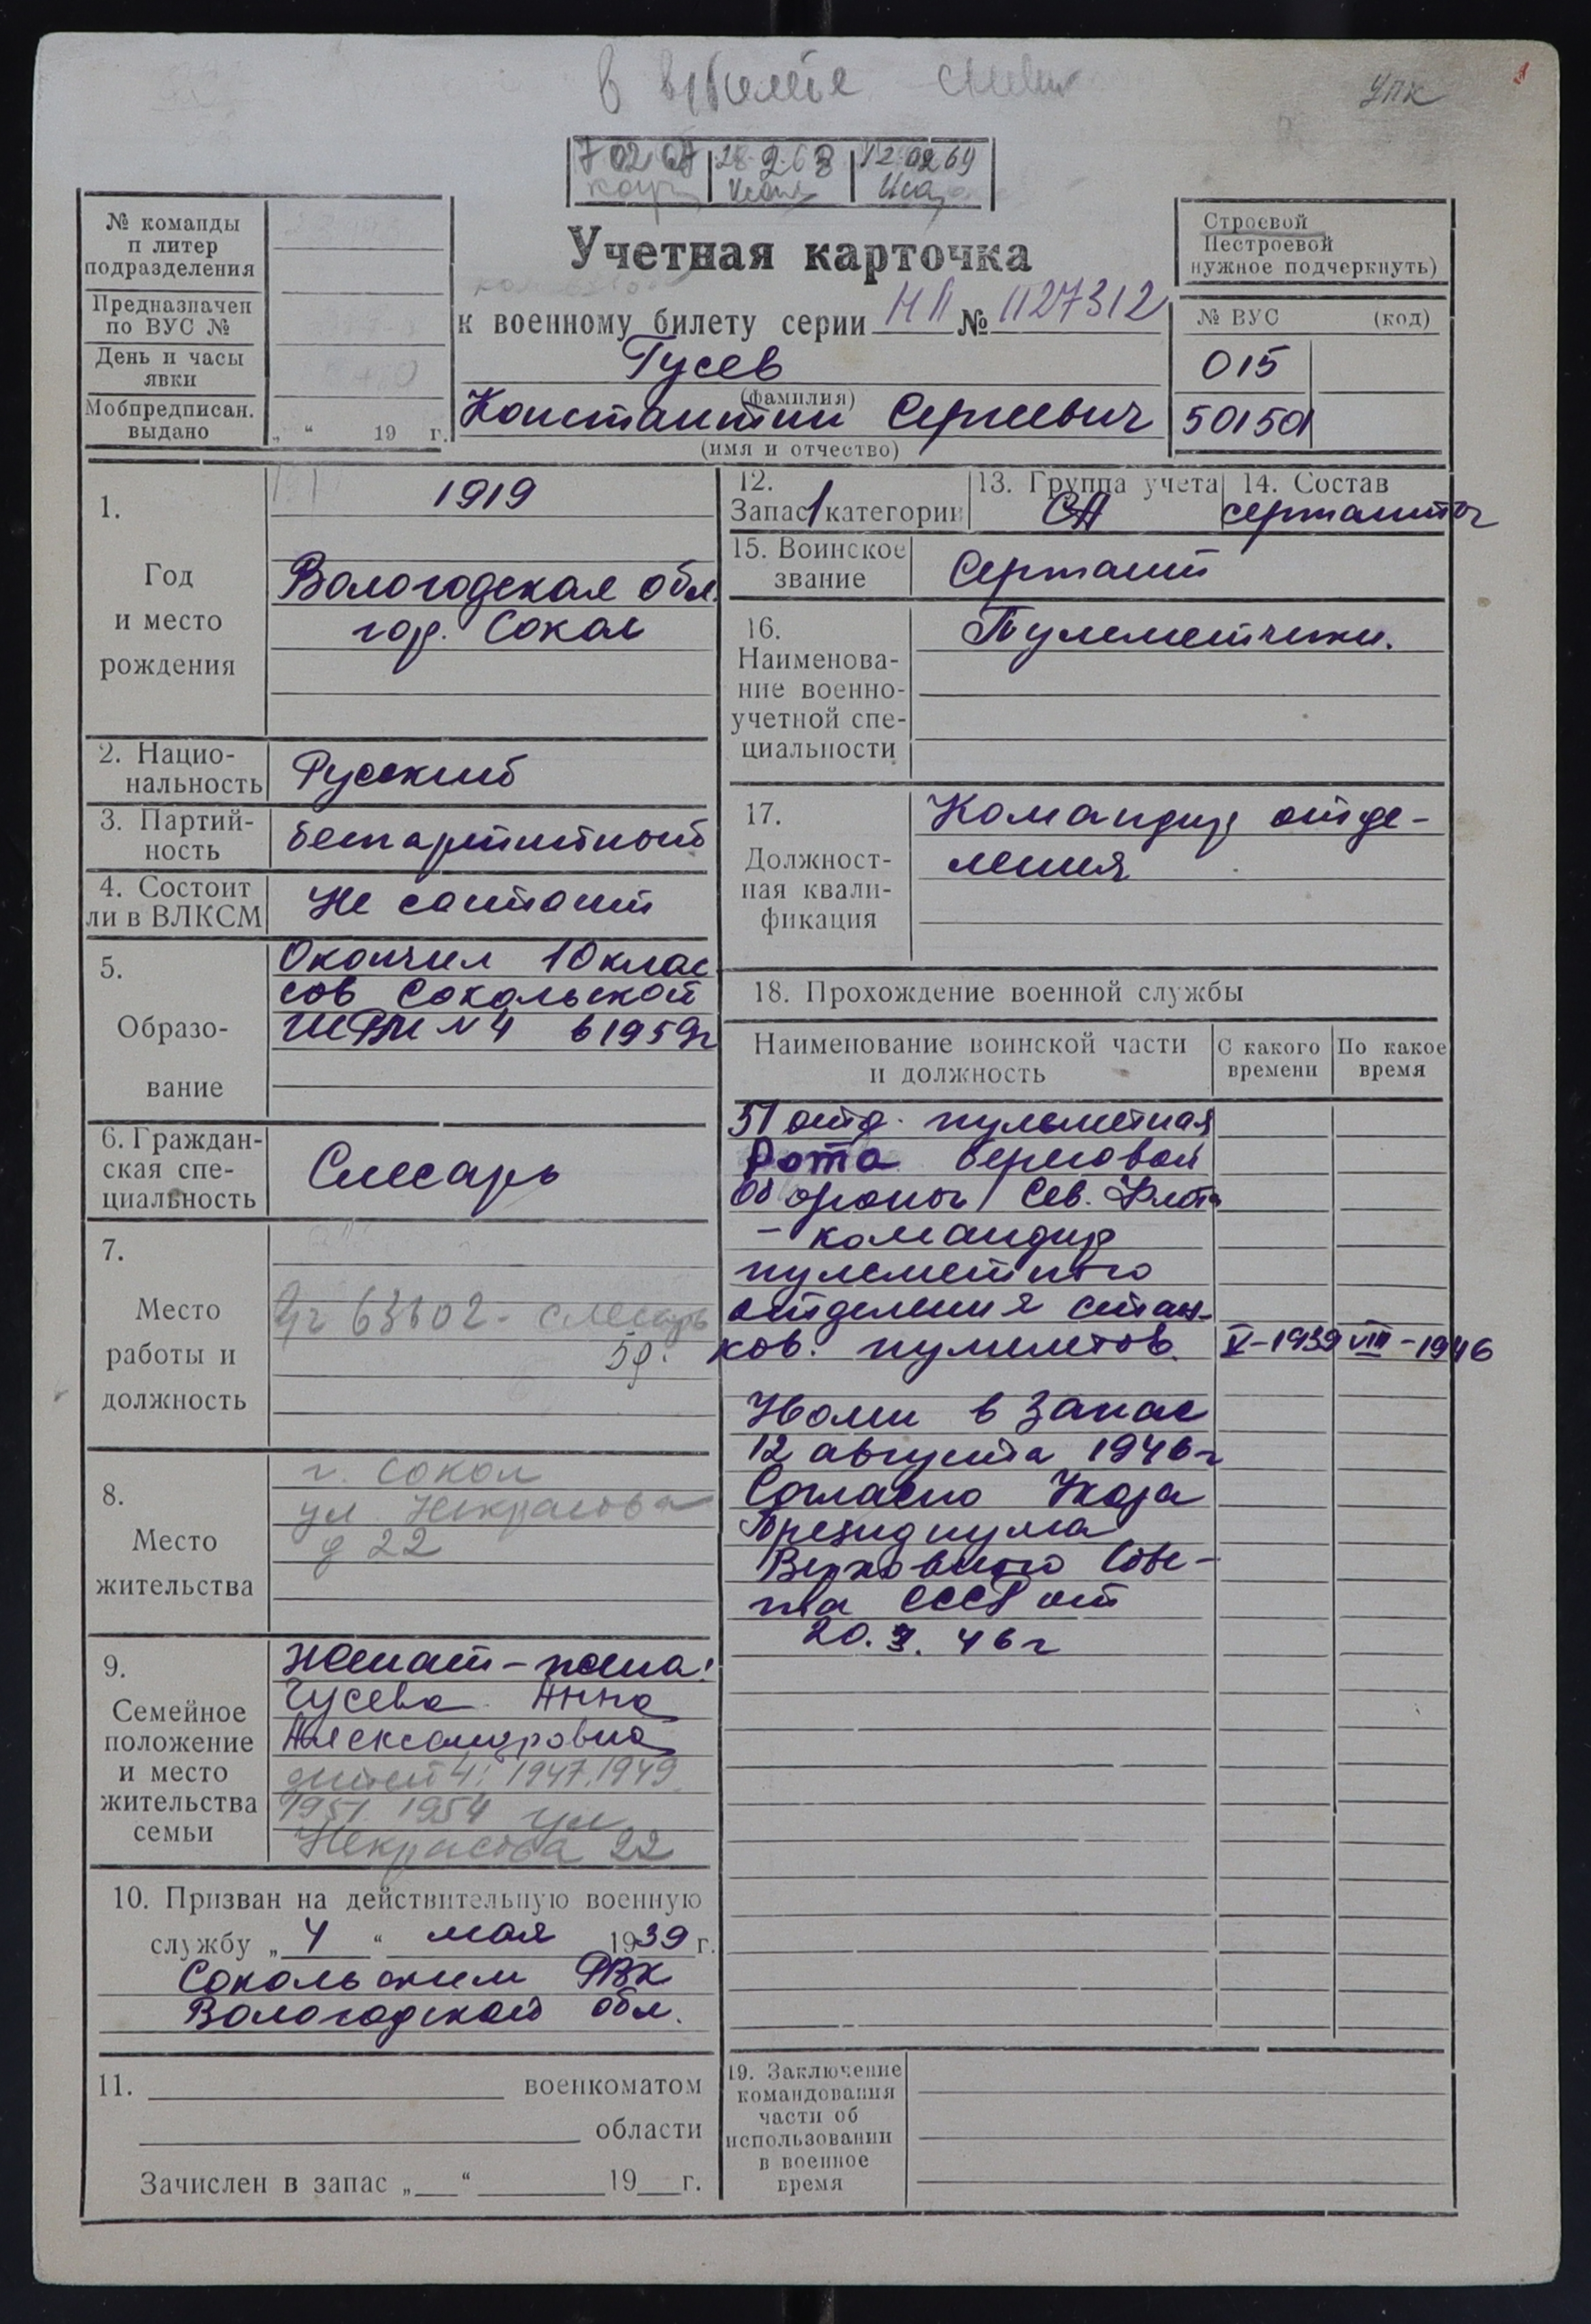 УПК
7 02 67 28.2.68 12 02 69
№ команды
п литер
подразделения
Предназначен
по ВУС №
День и часы
явки
Мобпредписан.
выдано „ “ 19 г.
Учетная карточка
к военному билету серии НП № 1127312
Гусев
(фамилия)
Константин Сергеевич
(имя и отчество)
Строевой
Нестроевой
нужное подчеркнуть)
№ ВУС (код)
015
501501
1.
Год
и место
рождения
1919
Вологодская обл.
гор. Сокол
2. Нацио-
нальность
Русский
3. Партий-
ность
беспартийный
4. Состоит
ли в ВЛКСМ
Не состоит
5.
Образо-
вание
Окончил 10 клас
сов Сокольской
ШРМ № 4 в 1959г
6. Граждан-
ская спе-
циальность
Слесарь
7.
Место
работы и
должность
63102 - слесарь
5р.
8.
Место
жительства
г. Сокол
ул Некрасова
д 22
9.
Семейное
положение
и место
жительства
семьи
Женат - жена:
Гусева Анна
Александровна
детей 4: 1947, 1949
1951. 1954 ул
Некрасова 22
10. Призван на действительную военную
службу „ 4 “ мая 1939 г.
Сокольским РВК
Вологодской обл.
11. военкоматом
области
Зачислен в запас „ “ 19 г.
12.
Запас 1 категории
13. Группа учета
СА
14. Состав
сержанты
15. Воинское
звание
Сержант
16.
Наименова-
ние военно-
учетной спе-
циальности
Пулеметчики.
17.
Должност-
ная квали-
фикация
Командир отде-
ления
18. Прохождение военной службы
Наименование воинской части
и должность
С какого
времени
По какое
время
51 отд. пулеметная
Рота береговой
обороны Сев. Флота
- командир
пулеметного
отделения стан-
ков. пулеметов. V-1939 VIII-1946
Уволен в запас
12 августа 1946 г
Согласно Указа
Президиума
Верховного Сове-
та СССР от
20. 46 г
19. Заключение
командования
части об
использовании
в военное
время